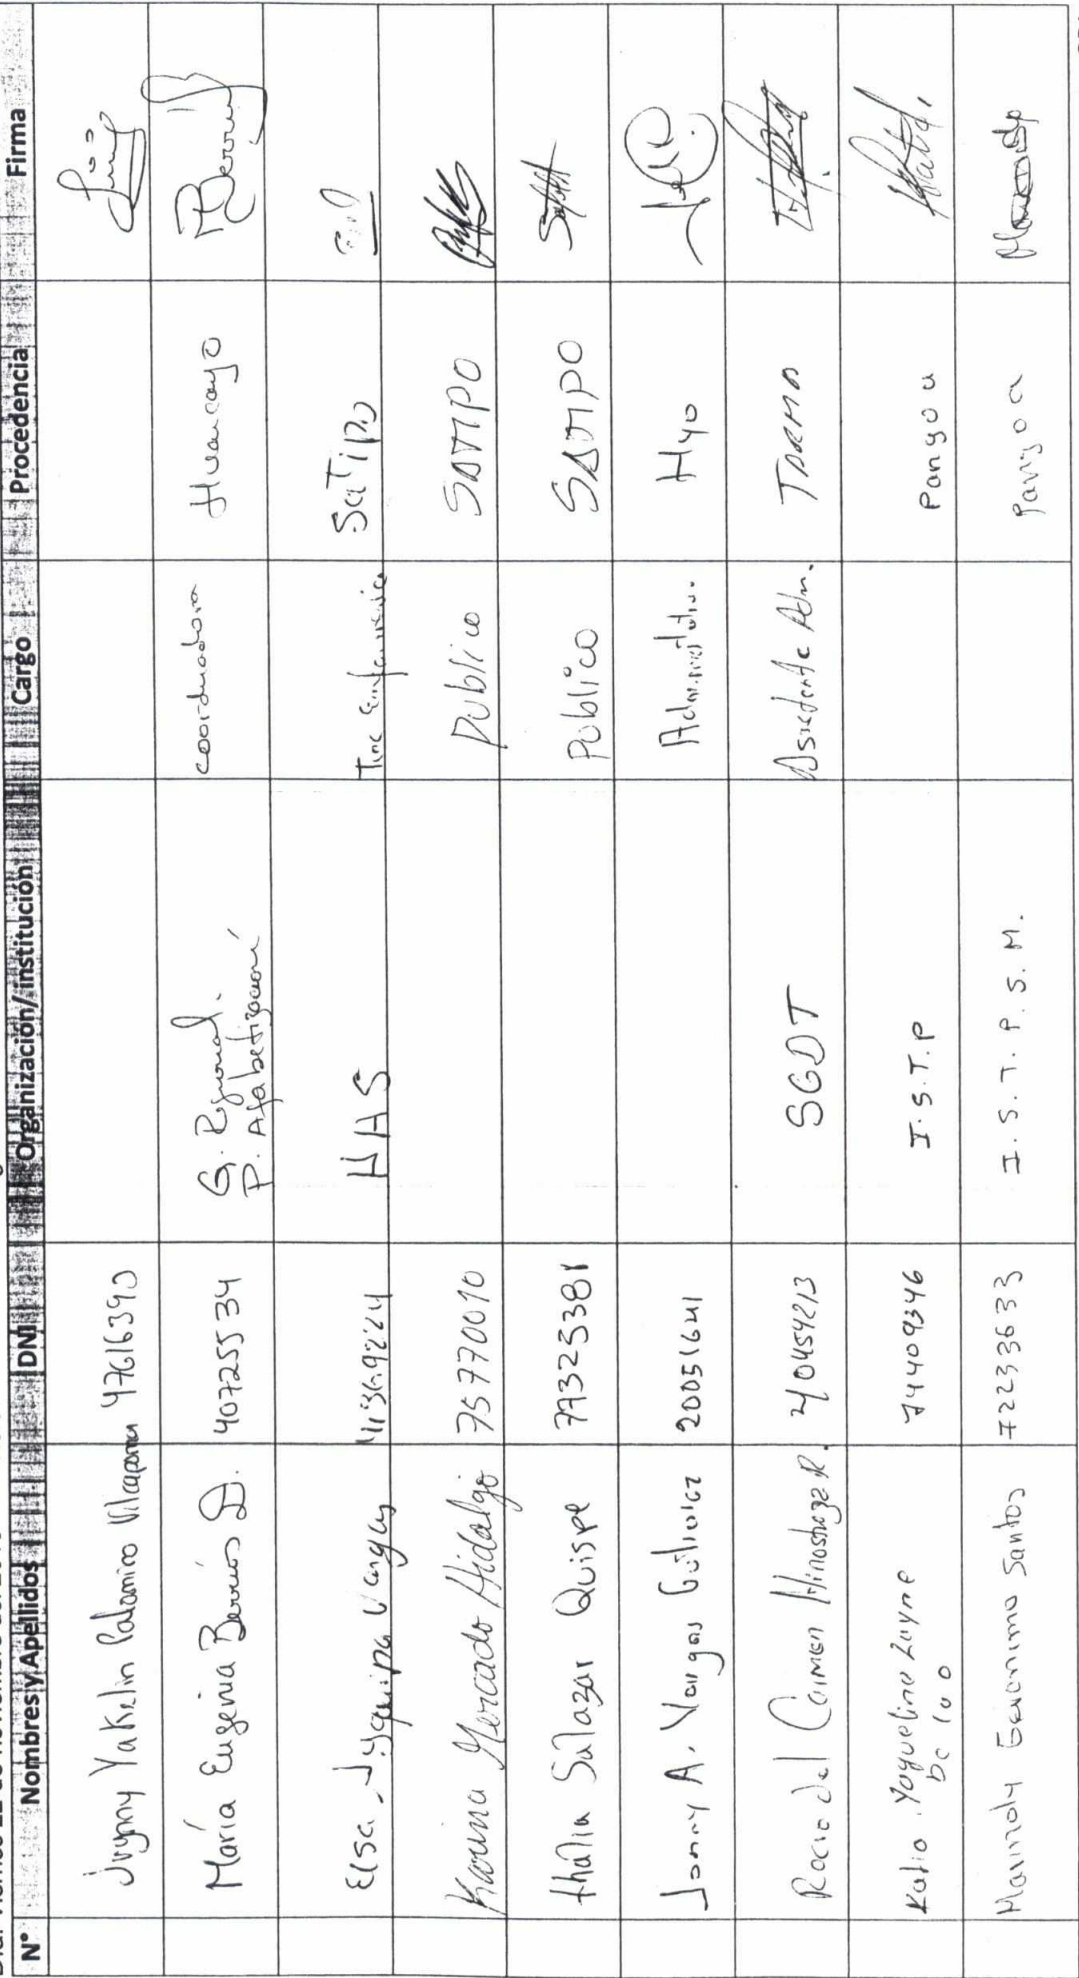 N° Nombres y Apellidos DNI Organización/institución Cargo Procedencia Firma
Palomino Vilcapoma 47616390
María Eugenia Berrios D. 40725534 G. Regional. P. Alfabetización coordinadora Huancayo
Elsa HAS Satipo
Karina Mercado Hidalgo 75770010 Publico SATIPO
thalia Salazar Quispe 77325381 Publico SATIPO
Jonny A. Vargas 20051641 Hyo
Rocio del Carmen Hinostroza R. 40454213 SGDT Asistente Adm. TARMA
Katio Yoquelino 74409346 I.S.T.P Pangoa
Geronimo Santos 72233633 I.S.T.P.S.M. Pangoa